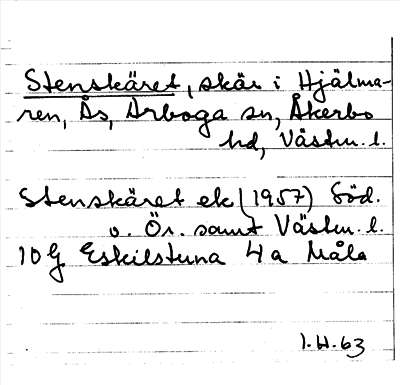 Stenskäret, skär i Hjälma-
ren, Ås, Arboga sn, Åkerbo
hd, Västm. l.
Stenskäret ek (1957) Söd.
o. Ör. samt Västm. l.
10 G Eskilstuna 4 a
1.H.63